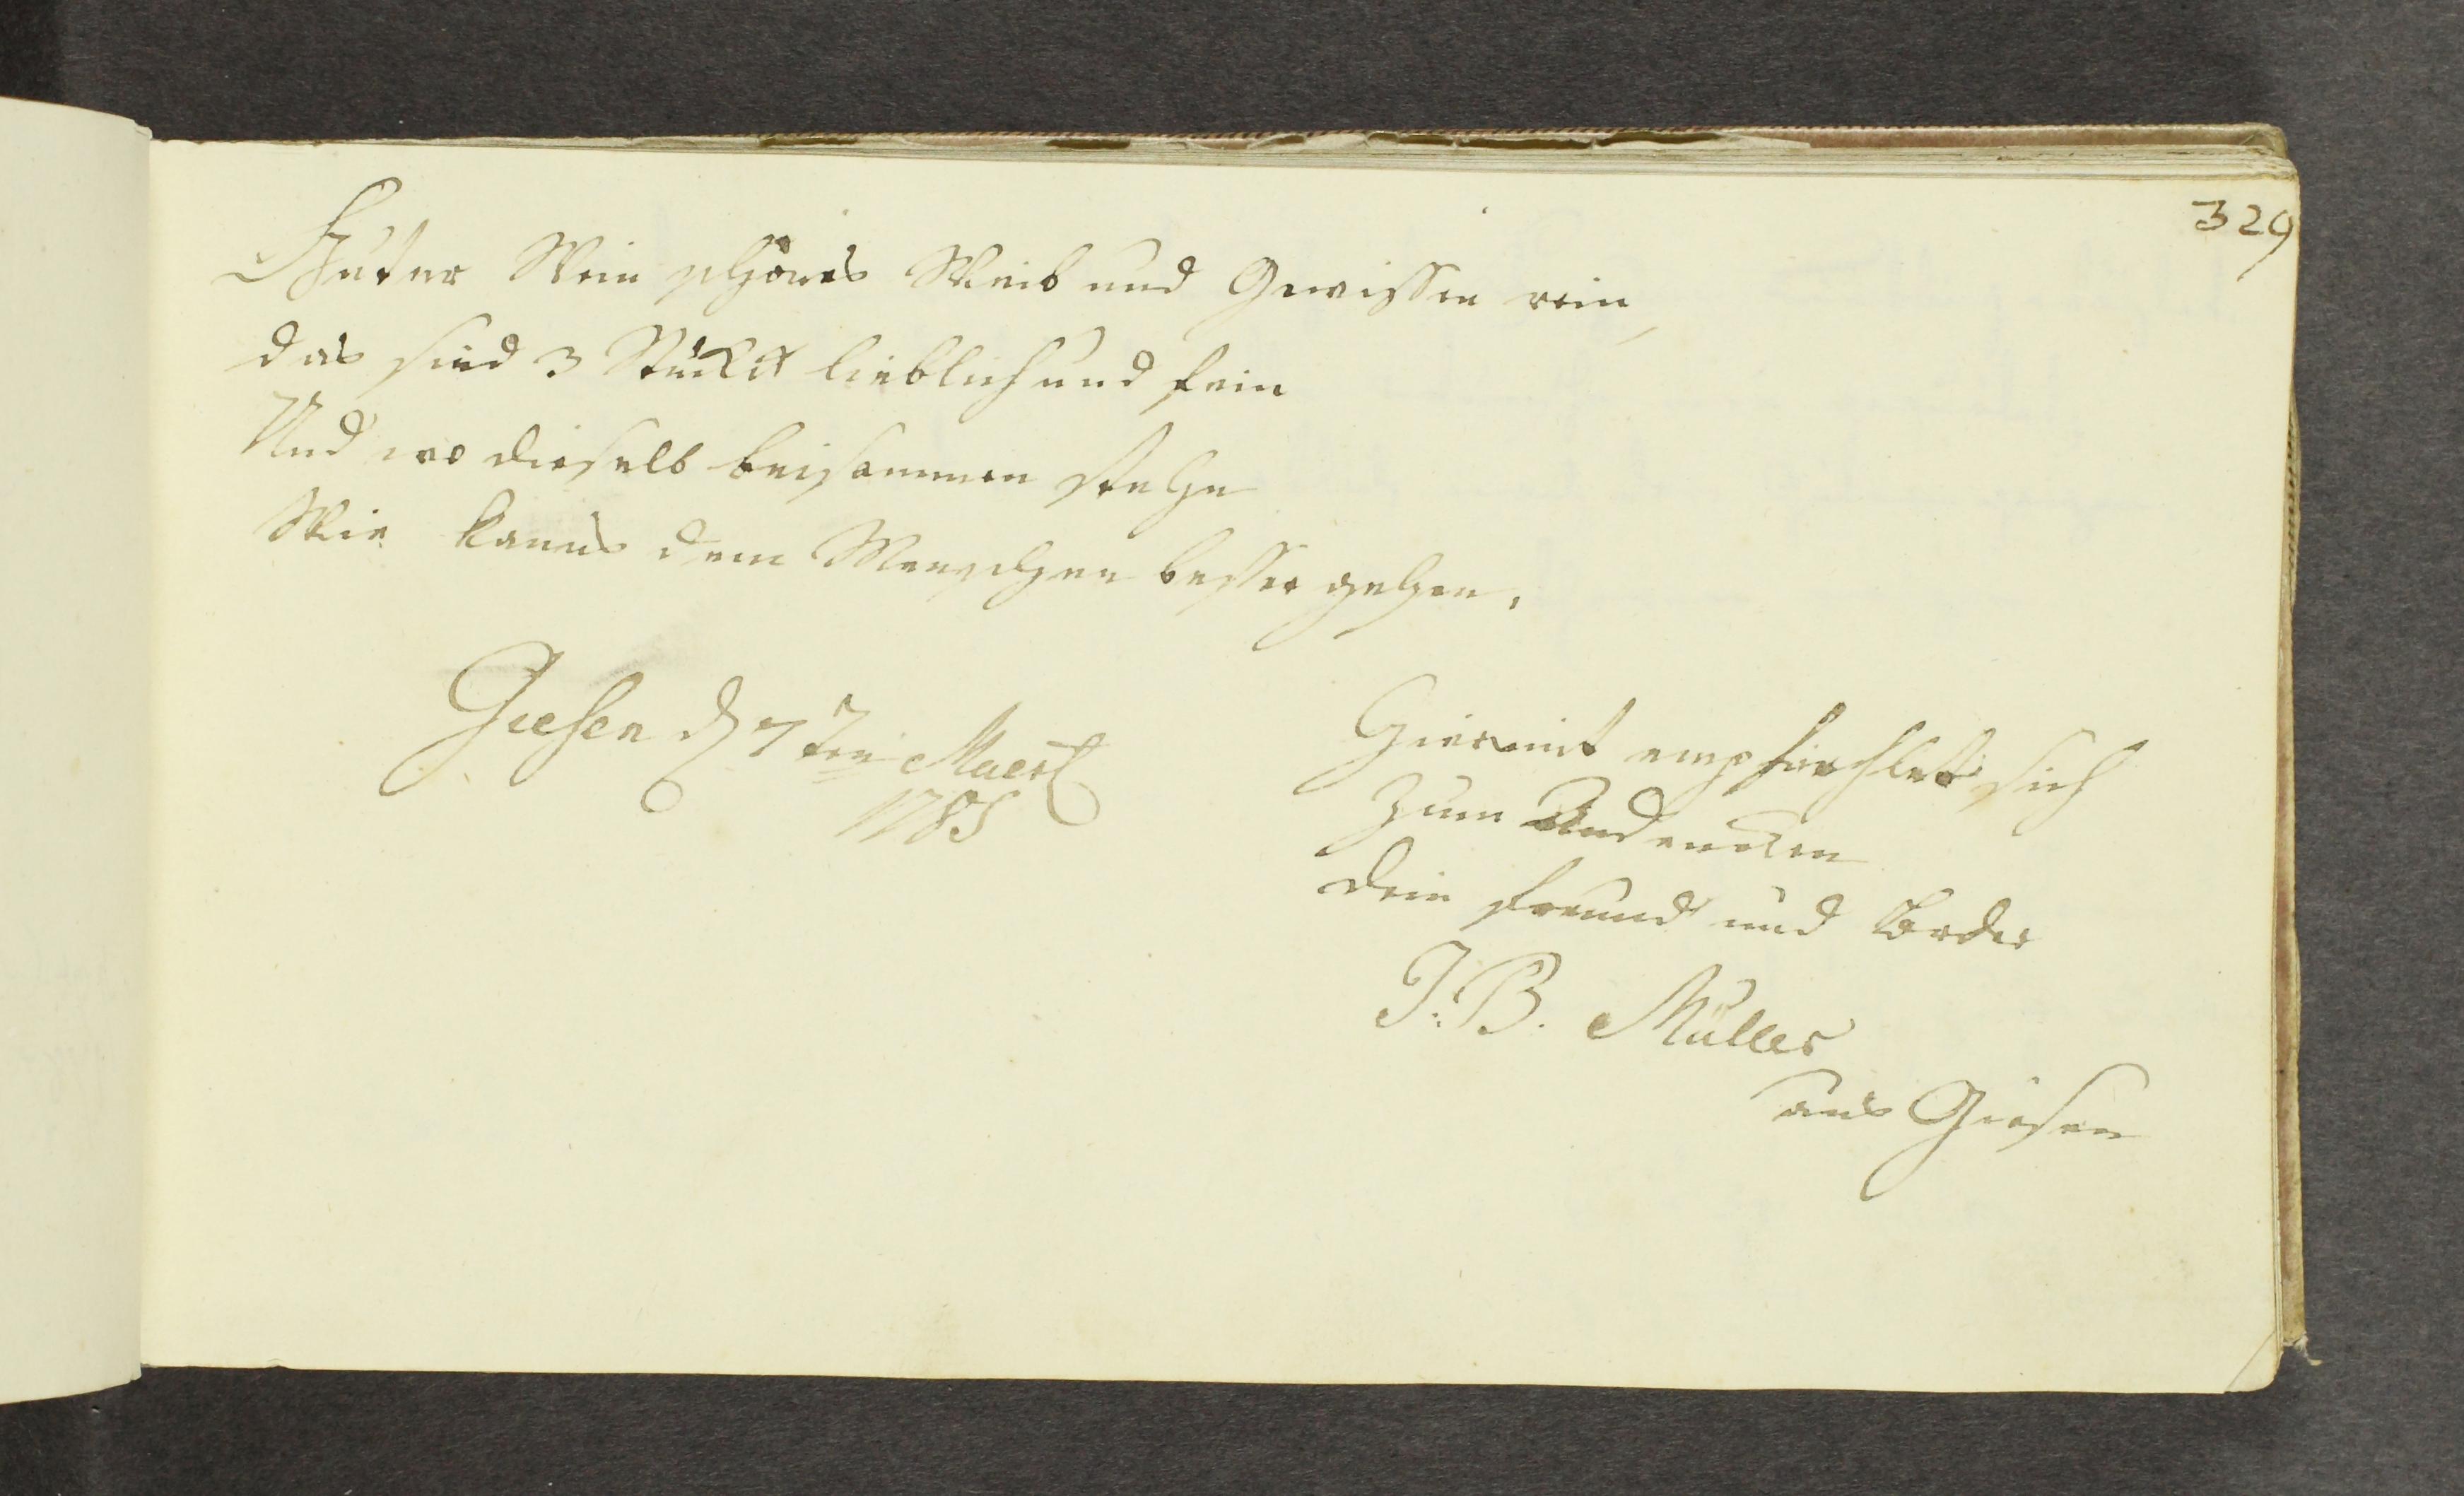 329
Guter Wein schönes Weib und Gewissen rein,
das sind 3 Stückt lieblich und fein
Und wo dieselb beisammen stehe
Wie kanns dem Menschen besser gehen.
Giesen d 7ten Maerz
1785
Hiermit empfiehlet sich
zum Andencken
dein freund und Bruder
J. B. Müller
aus Giesen